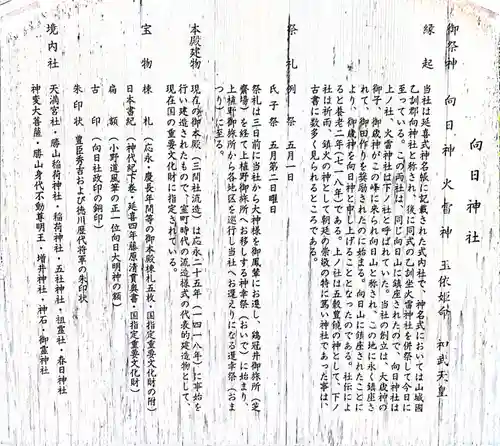 向日神社
御祭神　向日神　火雷神　玉依姫命　神武天皇
縁起　当社は延喜式神名帳に記載された式内社で、神名式においては山城国
乙訓郡向神社と称され、後に同式の乙訓坐火雷神社を併祭して今日に
至っている。この両社は、同じ向日山に鎮座されたので、向日神社は
上ノ社、火雷神社は下ノ社と呼ばれていた。当社の創立は、大歳神の
御子、御歳神がこの峰に来られ向日山と称され、この地に永く鎮座さ
れて、御田作りを奨励されたのに始まる。向日山に鎮座されたことに
より、御歳神を向日神と申し上げることとなったのである。社伝によ
ると養老二年（七一八年）とある。上ノ社は五穀豊饒の神として、下ノ
社は祈雨、鎮火の神として朝廷の崇敬の特に篤い神社であった事は、
古書に数多く見られるところである。
祭礼　例祭　五月一日
氏子祭　五月第二日曜日
祭礼は三日前に当社から大神様を御鳳輦にお遷し、鶏冠井御旅所（芝
斎場）を経て上植野御旅所へお移しする神幸祭（おいで）に始まり、
上植野御旅所から各地区を巡行し当社へお還えりになる還幸祭（おま
つり）に至る。
本殿建物　現在の御本殿（三間社流造）は応永二十五年（一四一八年）に事始を
行い建造されたもので、室町時代の流造様式の代表的建造物として、
現在国の重要文化財に指定されている。
宝物　棟札（応永・慶長年間等の御本殿棟札五枚・国指定重要文化財の附）
日本書紀（神代紀下巻・延喜四年藤原清貫奥書・国指定重要文化財）
扁額（小野道風筆の正一位向日大明神の額）
古印（向日社政印の銅印）
朱印状　豊臣秀吉および徳川歴代将軍の朱印状
境内社　天満宮社・勝山稲荷神社・稲荷神社・五社神社・祖霊社・春日神社
神変大菩薩・勝山身代不動尊明王・増井神社・神石・御霊神社